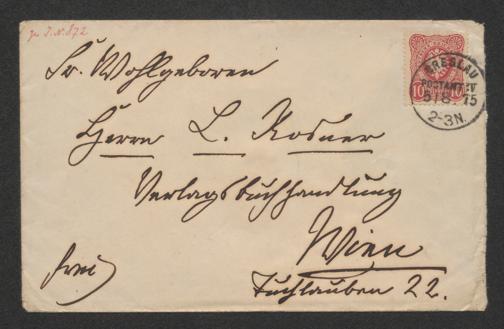 zu I.N. 872
Sr. Wohlgeboren
Herrn L. Rosner
Verlagsbuchhandlung
Wien
frei
Tuchlauben 22.
10 10
BRESLAU
POSTAMT IV
5/8 75
2-3N.